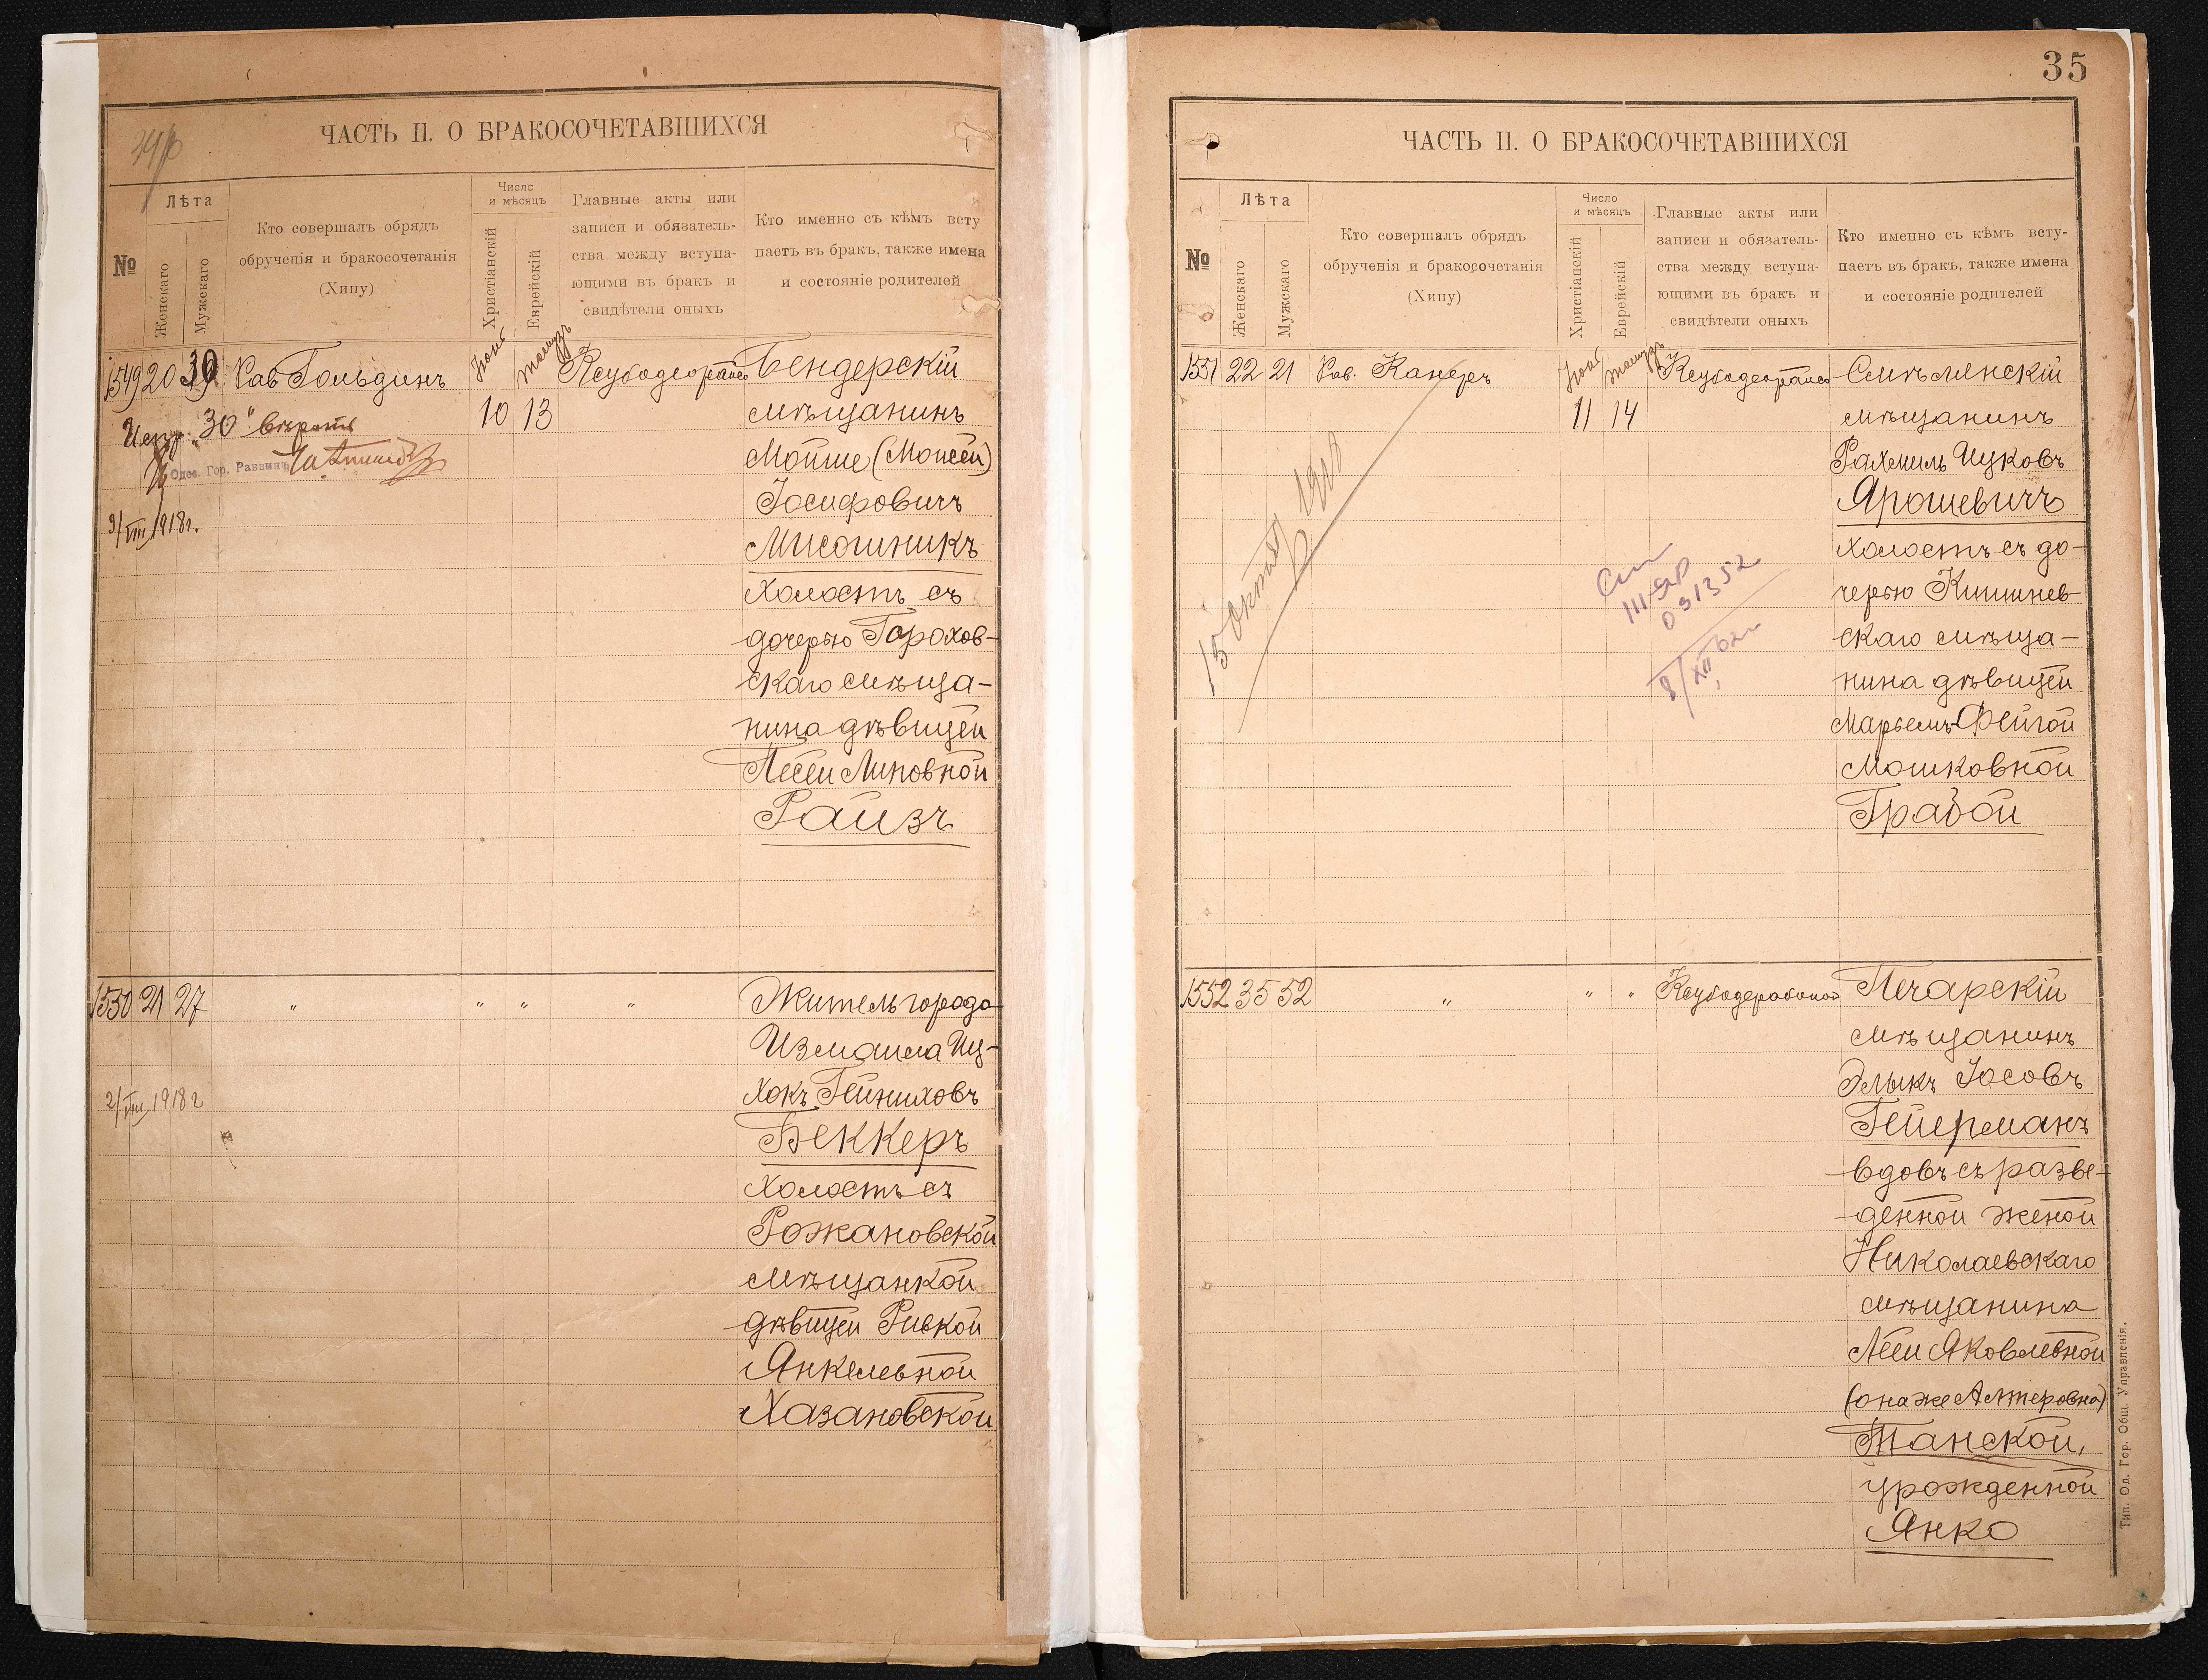 ЧАСТЬ II. О БРАКОСОЧЕТАВШИХСЯ
№
Лѣта
Женскаго
Мужскаго
Кто совершалъ обрядъ
обрученія и бракосочетанія
(Хипу)
Число
и мѣсяцъ
Христіанскій
Еврейскій
Главные акты или
записи и обязатель-
ства между вступа-
ющими въ бракъ и
свидѣтели оныхъ
Кто именно съ кѣмъ всту
паетъ въ бракъ, также имена
и состояніе родителей
1549 20 30 Рав Гольдинъ
10 13
Испр. "30" вѣрить
Одес. Гор. Раввинъ
9/VIII 1918г.
Бендерскій
мѣщанинъ
Мойше (Моисей)
Іосифовичъ
Мисошникъ
холостъ съ
дочерью Горохов-
скаго мѣща-
нина дѣвицей
Песей Липовной
Райзъ
1550 21 27 " " " "
2/VIII 1918 г
Житель города
Измаила Иц-
хокъ Гейниховъ
Беккеръ
холостъ съ
Рожановской
мѣщанкой
дѣвицей Ривкой
Янкелевной
Хазановской
35
ЧАСТЬ II. О БРАКОСОЧЕТАВШИХСЯ
№
Лѣта
Женскаго
Мужскаго
Кто совершалъ обрядъ
обрученія и бракосочетанія
(Хипу)
Число
и мѣсяцъ
Христіанскій
Еврейскій
Главные акты или
записи и обязатель-
ства между вступа-
ющими въ бракъ и
свидѣтели оныхъ
Кто именно съ кѣмъ всту-
паетъ въ бракъ, также имена
и состояніе родителей
1551 22 21 Рав. Канеръ
11 14
15 октяб
031352
8/XII
Смѣлянскій
мѣщанинъ
Рахмиль Ицковъ
Ярошевичъ
холостъ съ до-
черью Кишинев-
скаго мѣща-
нина дѣвицей
Марьемъ-Фейгой
Мошковной
Грабой
1552 35 52 " " "
Печарскій
мѣщанинъ
Элыкъ Іосовъ
Гейерманъ
вдовъ съ разве-
денной женой
Николаевскаго
мѣщанина
Леей Яковлевной
(она же Алтеровна)
Танской,
урожденной
Янко
Тип. Од. Гор. Общ. Управленія.